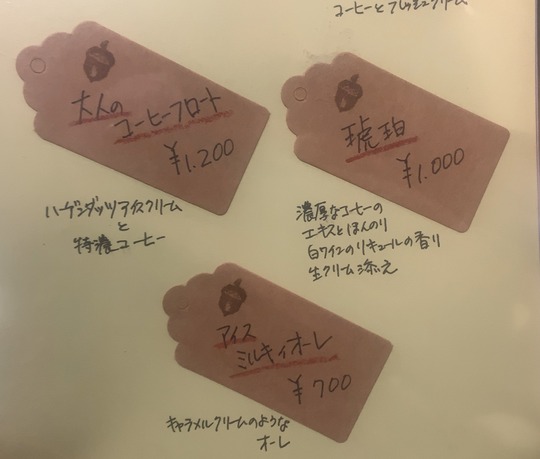 コーヒーとフレッシュクリーム
大人の
コーヒーフロート
¥1.200
ハーゲンダッツアイスクリーム
と
特濃コーヒー
琥珀
¥1.000
濃厚なコーヒーの
エキスとほんのり
白ワインのリキュールの香り
生クリーム添え
アイス
ミルキィオーレ
¥700
キャラメルクリームのような
オーレ